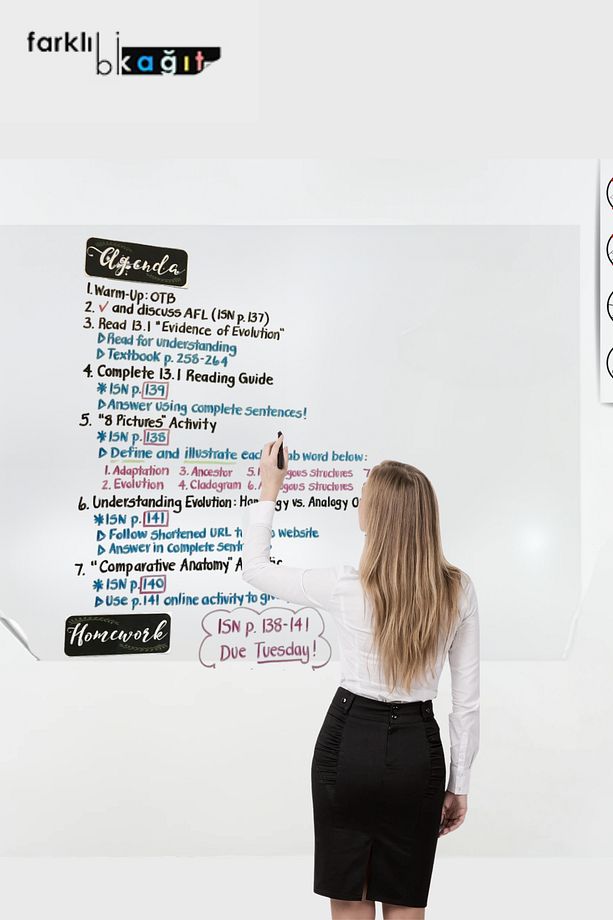 farklı bi kağıt
Agenda
1. Warm-Up: OTB
2. ✓ and discuss AFL (ISN p. 137)
3. Read 13.1 "Evidence of Evolution"
Read for understanding
Textbook p. 258-264
4. Complete 13.1 Reading Guide
* ISN p. 139
Answer using complete sentences!
5. "8 Pictures" Activity
* ISN p. 138
Define and illustrate word below:
1. Adaptation 3. Ancestor 5. Structures 7
2. Evolution 4. Cladogram 6. Structures
6. Understanding Evolution: vs. Analogy
* ISN p. 141
Follow shortened URL website
Answer in complete
7. "Comparative Anatomy"
* ISN p. 140
Use p. 141 online activity to
Homework
ISN p. 138-141
Due Tuesday!